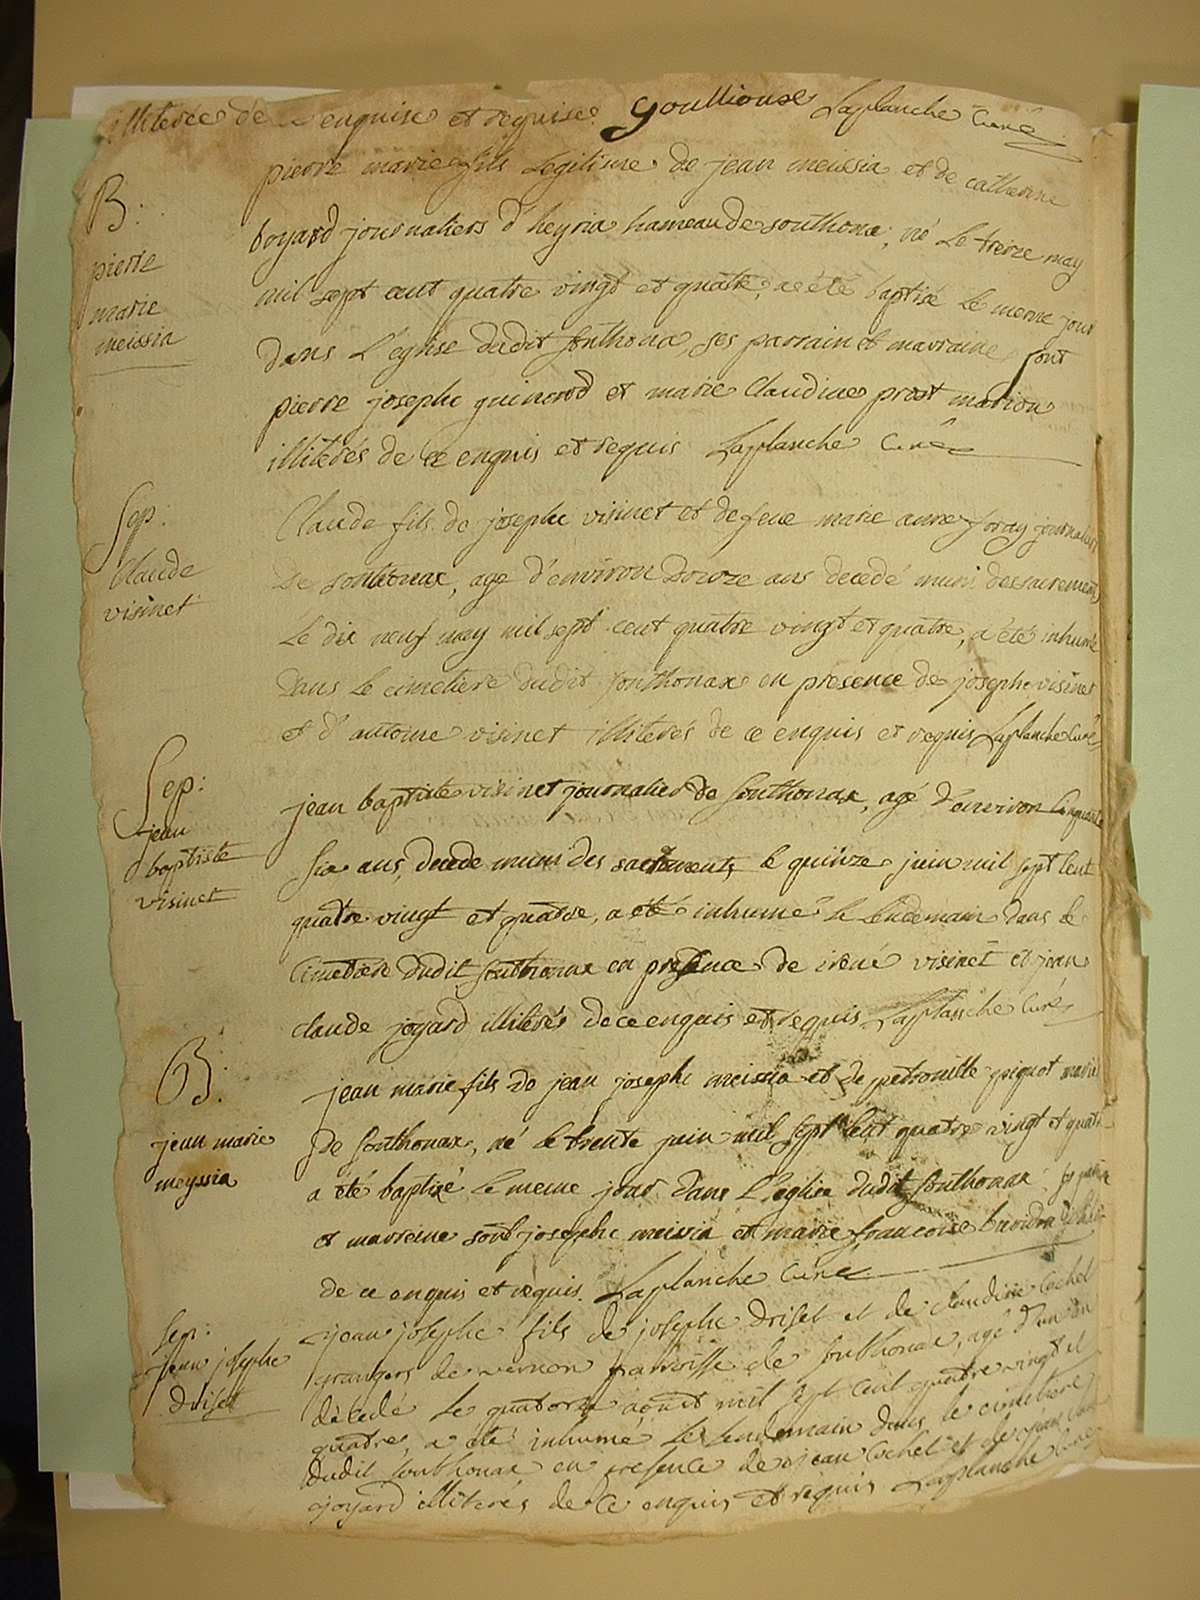 illiterée de enquise et requise. Goullioux Laplanche Curé
B:
pierre
marie
meissia
pierre marie fils Legitime de jean meissia et de catherine
boyard journaliers d'heyria hameau de southona, né Le treize may
mil sept cent quatre vingt et quatre, a été baptisé Le meme jour
dans L'eglise dudit southona, ses parrain et marraine sont
pierre josephe guicnod et marie Claudine prost marion
illiterés de ce enquis et requis Laplanche Curé
Sep:
Claude
visinet
Claude fils de josephe visinet et de feue marie anne foray journaliers
De southonax, age d'environ Douze ans decedé muni des sacrements
Le dix neuf may mil sept cent quatre vingt et quatre, a été inhumé
dans Le cimetiere dudit southonax en presence de josephe visinet
et d'antoine visinet illiterés de ce enquis et requis Laplanche Curé
Sep:
jean
baptiste
visinet
jean baptiste visinet journalier de southonax, agé d'environ Cinquante
six ans, decedé muni des sacrements le quinze juin mil sept cent
quatre vingt et quatre, a été inhumé le Lendemain dans le
Cimetiere dudit southonax en presence de irené visinet et jean
claude joyard illiterés de ce enquis et requis Laplanche Curé
B.
jean marie
meyssia
jean marie fils de jean josephe meissia et de petronille piquot mariés
De southonax, né le trente juin mil sept cent quatre vingt et quatre
a été baptisé Le meme jour dans L'eglise dudit southonax ses parrain
et marreine sont josephe meissia et marie francoise
de ce enquis et requis. Laplanche Curé
Sep:
jean josephe
Driset
jean josephe fils de josephe Driset et de claudine Cochet
grangers de vernon parroisse de southonax, agé d'un an
décédé Le quatorze août mil sept cent quatre vingt et
quatre, a été inhumé Le Lendemain dans le cimetiere
Dudit southonax en presence de jean Cochet et de jean Claude
joyard illiterés de Ce enquis et requis Laplanche Curé